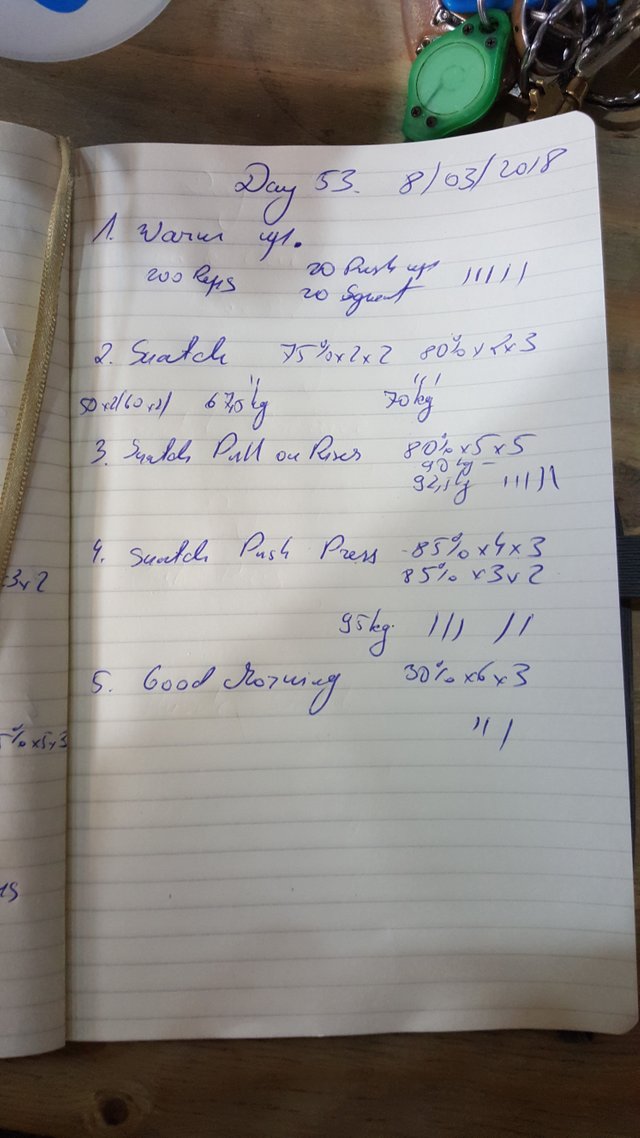 Day 53. 8/03/2018
1. Warm up.
200 Reps 20 Push up
20 Squat
2. Snatch 75%x2x2 80%x2x3
50x2/60x2/ 67,5kg 70kg
3. Snatch Pull on Rises 80%x5x5
90kg
92,5kg
4. Snatch Push Press 85%x4x3
85%x3x2
3x2
95kg.
5. Good Morning 30%x6x3
5%x5x3